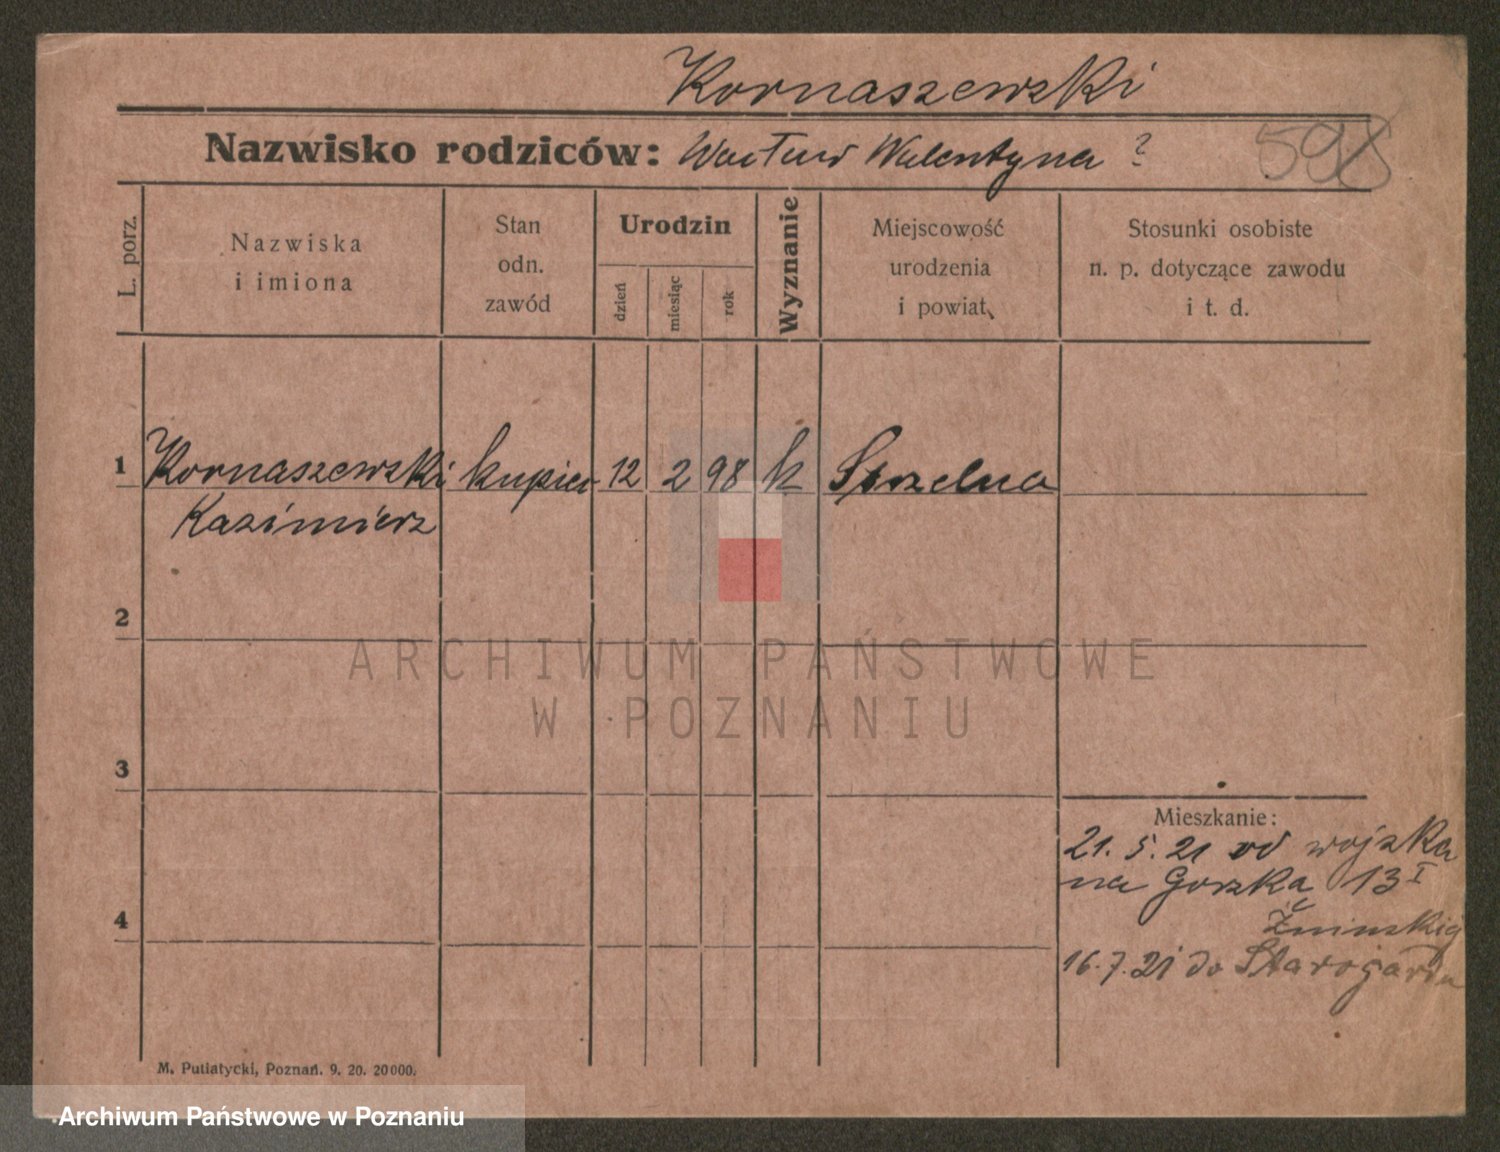 Kornaszewski
Nazwisko rodziców: Wacław Walentyna ?
598
L. porz.
Nazwiska
i imiona
Stan
odn.
zawód
Urodzin
dzień
miesiąc
rok
Wyznanie
Miejscowość
urodzenia
i powiat
Stosunki osobiste
n. p. dotyczące zawodu
i t. d.
1 Kornaszewski kupiec 12 2 98 k Strzelna
Kazimierz
2
ARCHIWUM PAŃSTWOWE
W POZNANIU
3
Mieszkanie:
21. 5. 21 od wojska
na Gorzka 13 I
4
16. 7. 21 do Starogardu
M. Putiatycki, Poznań. 9. 20. 20000.
Archiwum Państwowe w Poznaniu